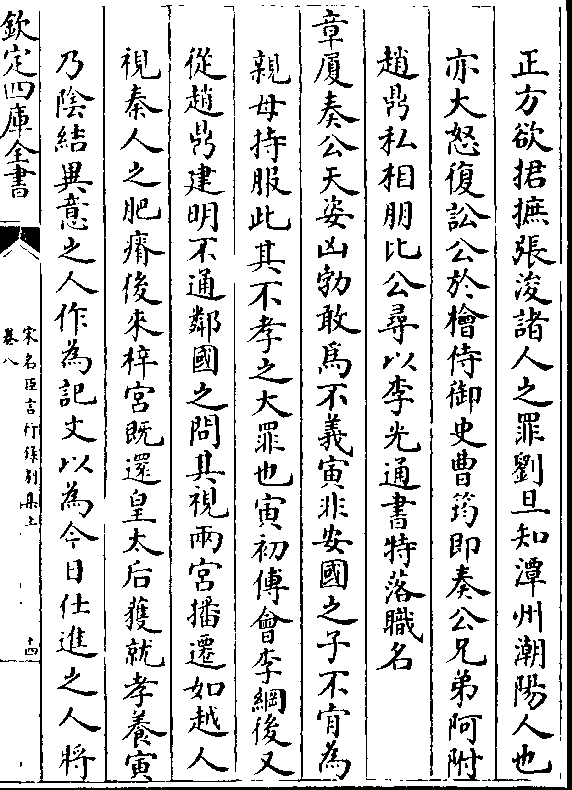 正方欲捃摭張浚諸人之罪劉旦知潭州潮陽人也
亦大怒復訟公於檜侍御史曹筠即奏公兄弟阿附
趙鼎私相朋比公尋以李光通書特落職名
章厦奏公天姿凶勃敢爲不義寅非安國之子不肯為
親母持服此其不孝之大罪也寅初傅會李綱後又
從趙鼎建明不通鄰國之問其視兩宮播遷如越人
視秦人之肥瘠後來梓宮既還皇太后獲就孝養寅
乃陰結異意之人作為記文以為今日仕進之人將
欽定四庫全書
宋名臣言行録别集上
卷八
十四